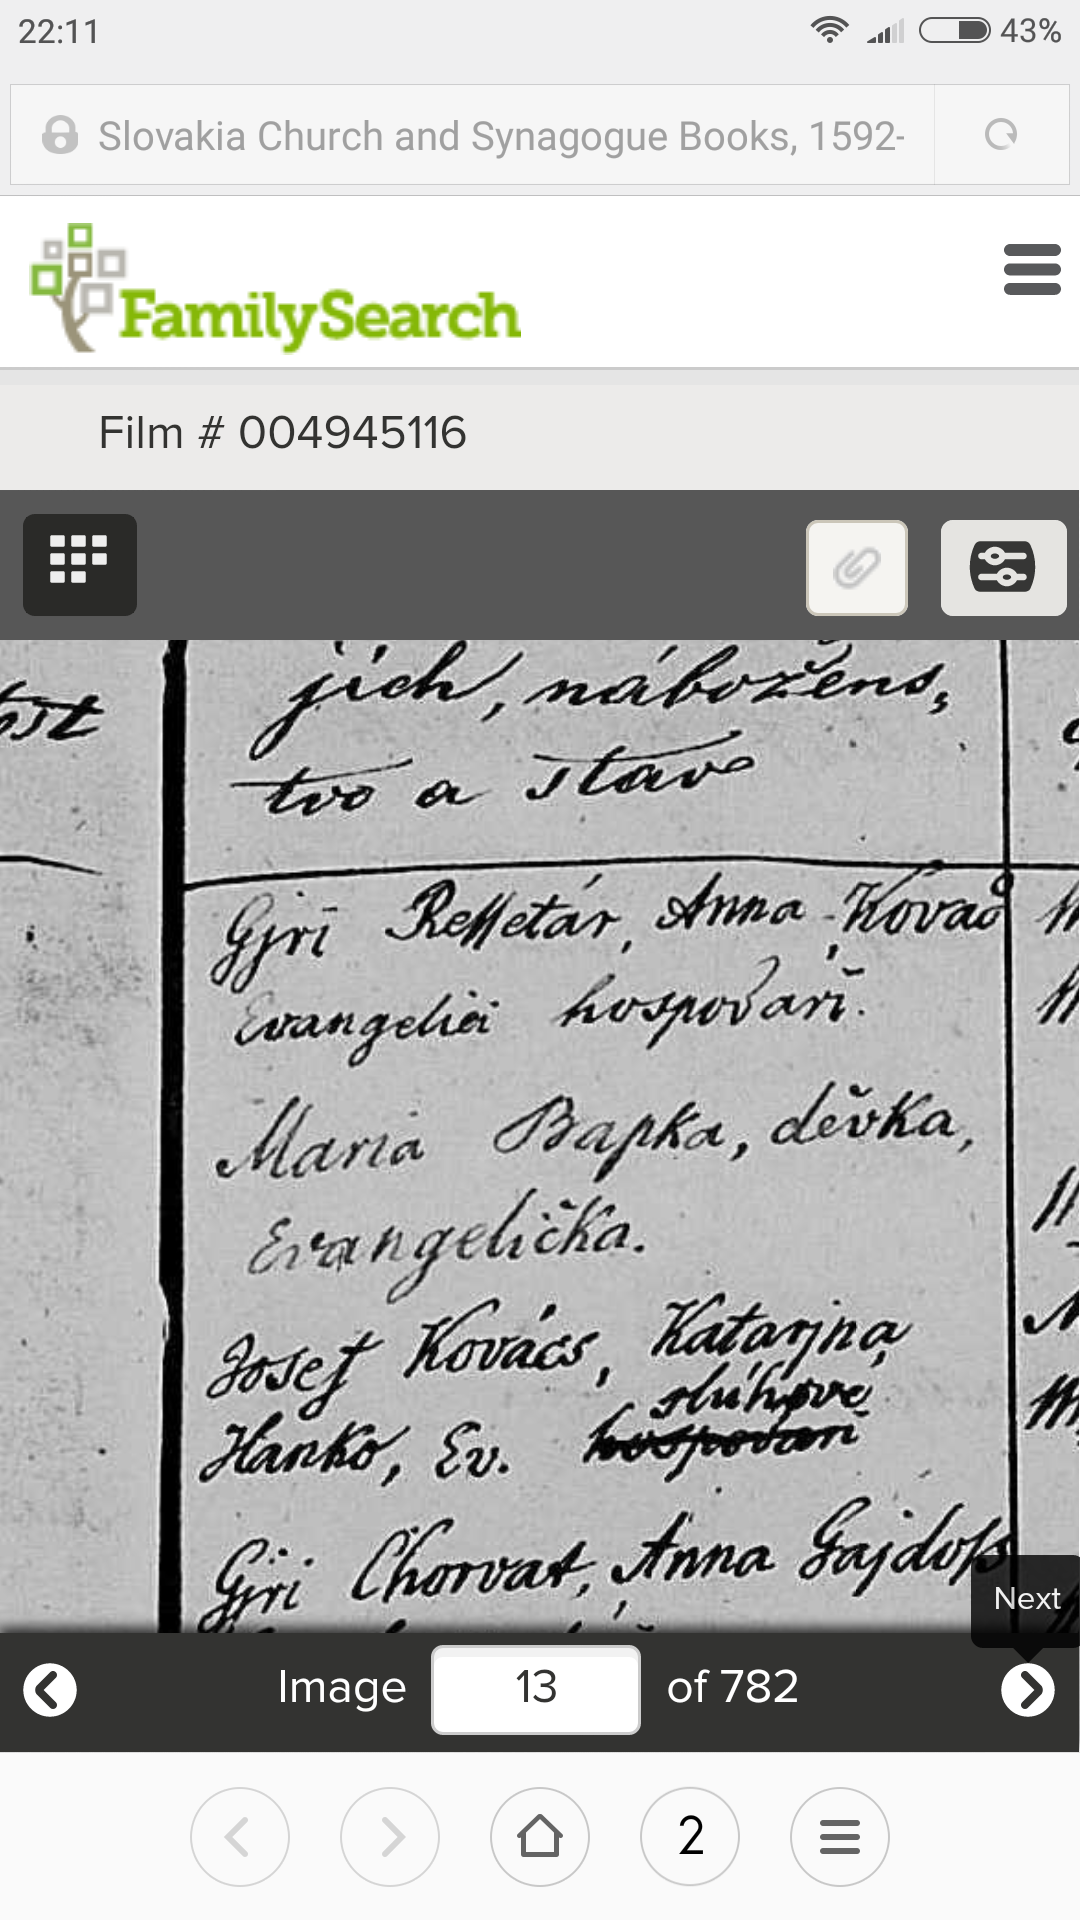 22:11
43%
Slovakia Church and Synagogue Books, 1592-
FamilySearch
Film # 004945116
jich, nábožens,
tvo a stavo
Gjri Reſſetár, Anna Kovač
Evangelici hospodaři.
Maria Bapka, děvka,
Evangelička.
Josef Kovács, Katarjna
slúhove
Hanko, Ev. hospodari
Gjri Chorvat, Anna Gajdoſs
Next
Image 13 of 782
2